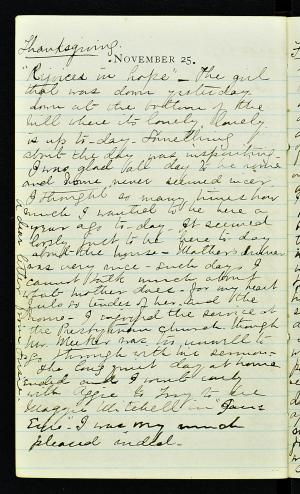 Thanksgiving.
NOVEMBER 25.
"Rejoices in hope" - The girl
that was down yesterday
down at the bottom of the
hill where its lonely, lonely
is up to-day - Something
about the day was inspiriting -
I was glad all day to be home
and home never seemed nicer
I thought so many times how
much I wanted to be here a
year ago to-day. It seemed
lovely just to be here to-day
about the house - Mother's dinner
was very nice - such days I
cannot talk much about
what mother does - for my heart
gets so tender of her and the
home - I enjoyed the service at
the Presbyterian church though
Mr. Meeker was too unwell to
go through with the sermon -
The long quiet day at home
ended and I went early
with Aggie to see
Maggie Mitchell in "Jane
Eyre" I was very much
pleased indeed -
A dear letter from